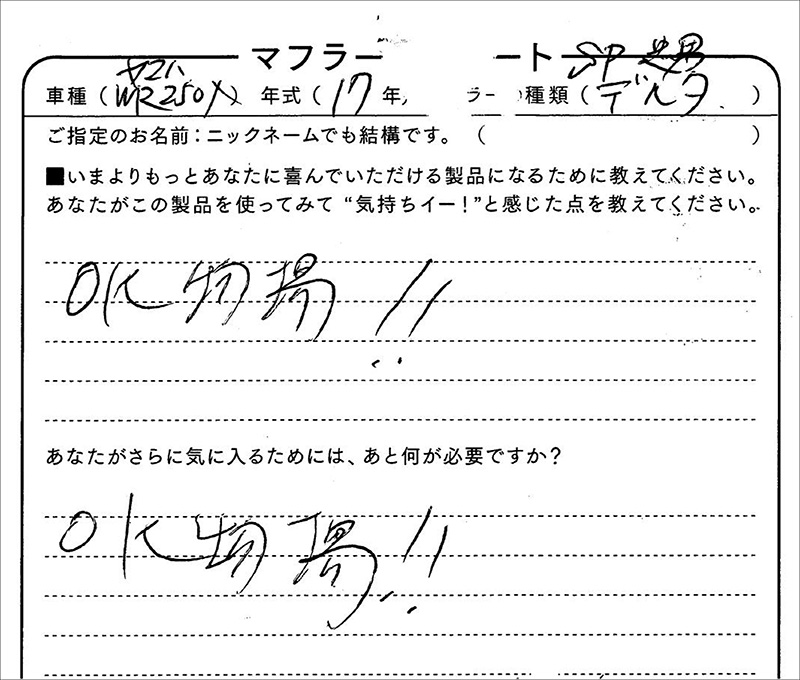 マフラー ート
車種（ヤマハ WR250X） 年式（17年 ラー 種類（SP忠男 デルタ ）
ご指定のお名前：ニックネームでも結構です。（ ）
■いまよりもっとあなたに喜んでいただける製品になるために教えてください。
あなたがこの製品を使ってみて“気持ちイー！”と感じた点を教えてください。
OK物場!!
あなたがさらに気に入るためには、あと何が必要ですか？
OK物場!!